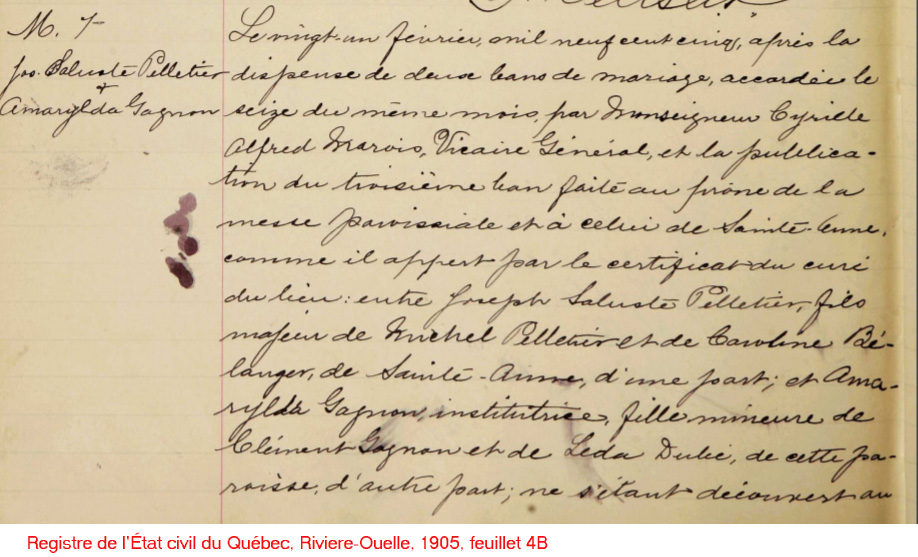 M. 7
Jos. Saluste Pelletier
+
Amarylda Gagnon
Le vingt-un février, mil neuf cent cinq, après la
dispense de deux bans de mariage, accordée le
seize du même mois, par Monseigneur Cyrille
Alfred Marois, Vicaire Général, et la publica-
tion du troisième ban faite au prône de la
messe paroissiale et à celui de Sainte-Anne,
comme il appert par le certificat du curé
du lieu: entre Joseph Saluste Pelletier, fils
majeur de Michel Pelletier et de Caroline Bé-
langer, de Sainte-Anne, d'une part; et Ama-
rylda Gagnon, institutrice, fille mineure de
Clément Gagnon et de Leda Dubé, de cette pa-
roisse, d'autre part; ne s'étant découvert au
Registre de l'État civil du Québec, Riviere-Ouelle, 1905, feuillet 4B